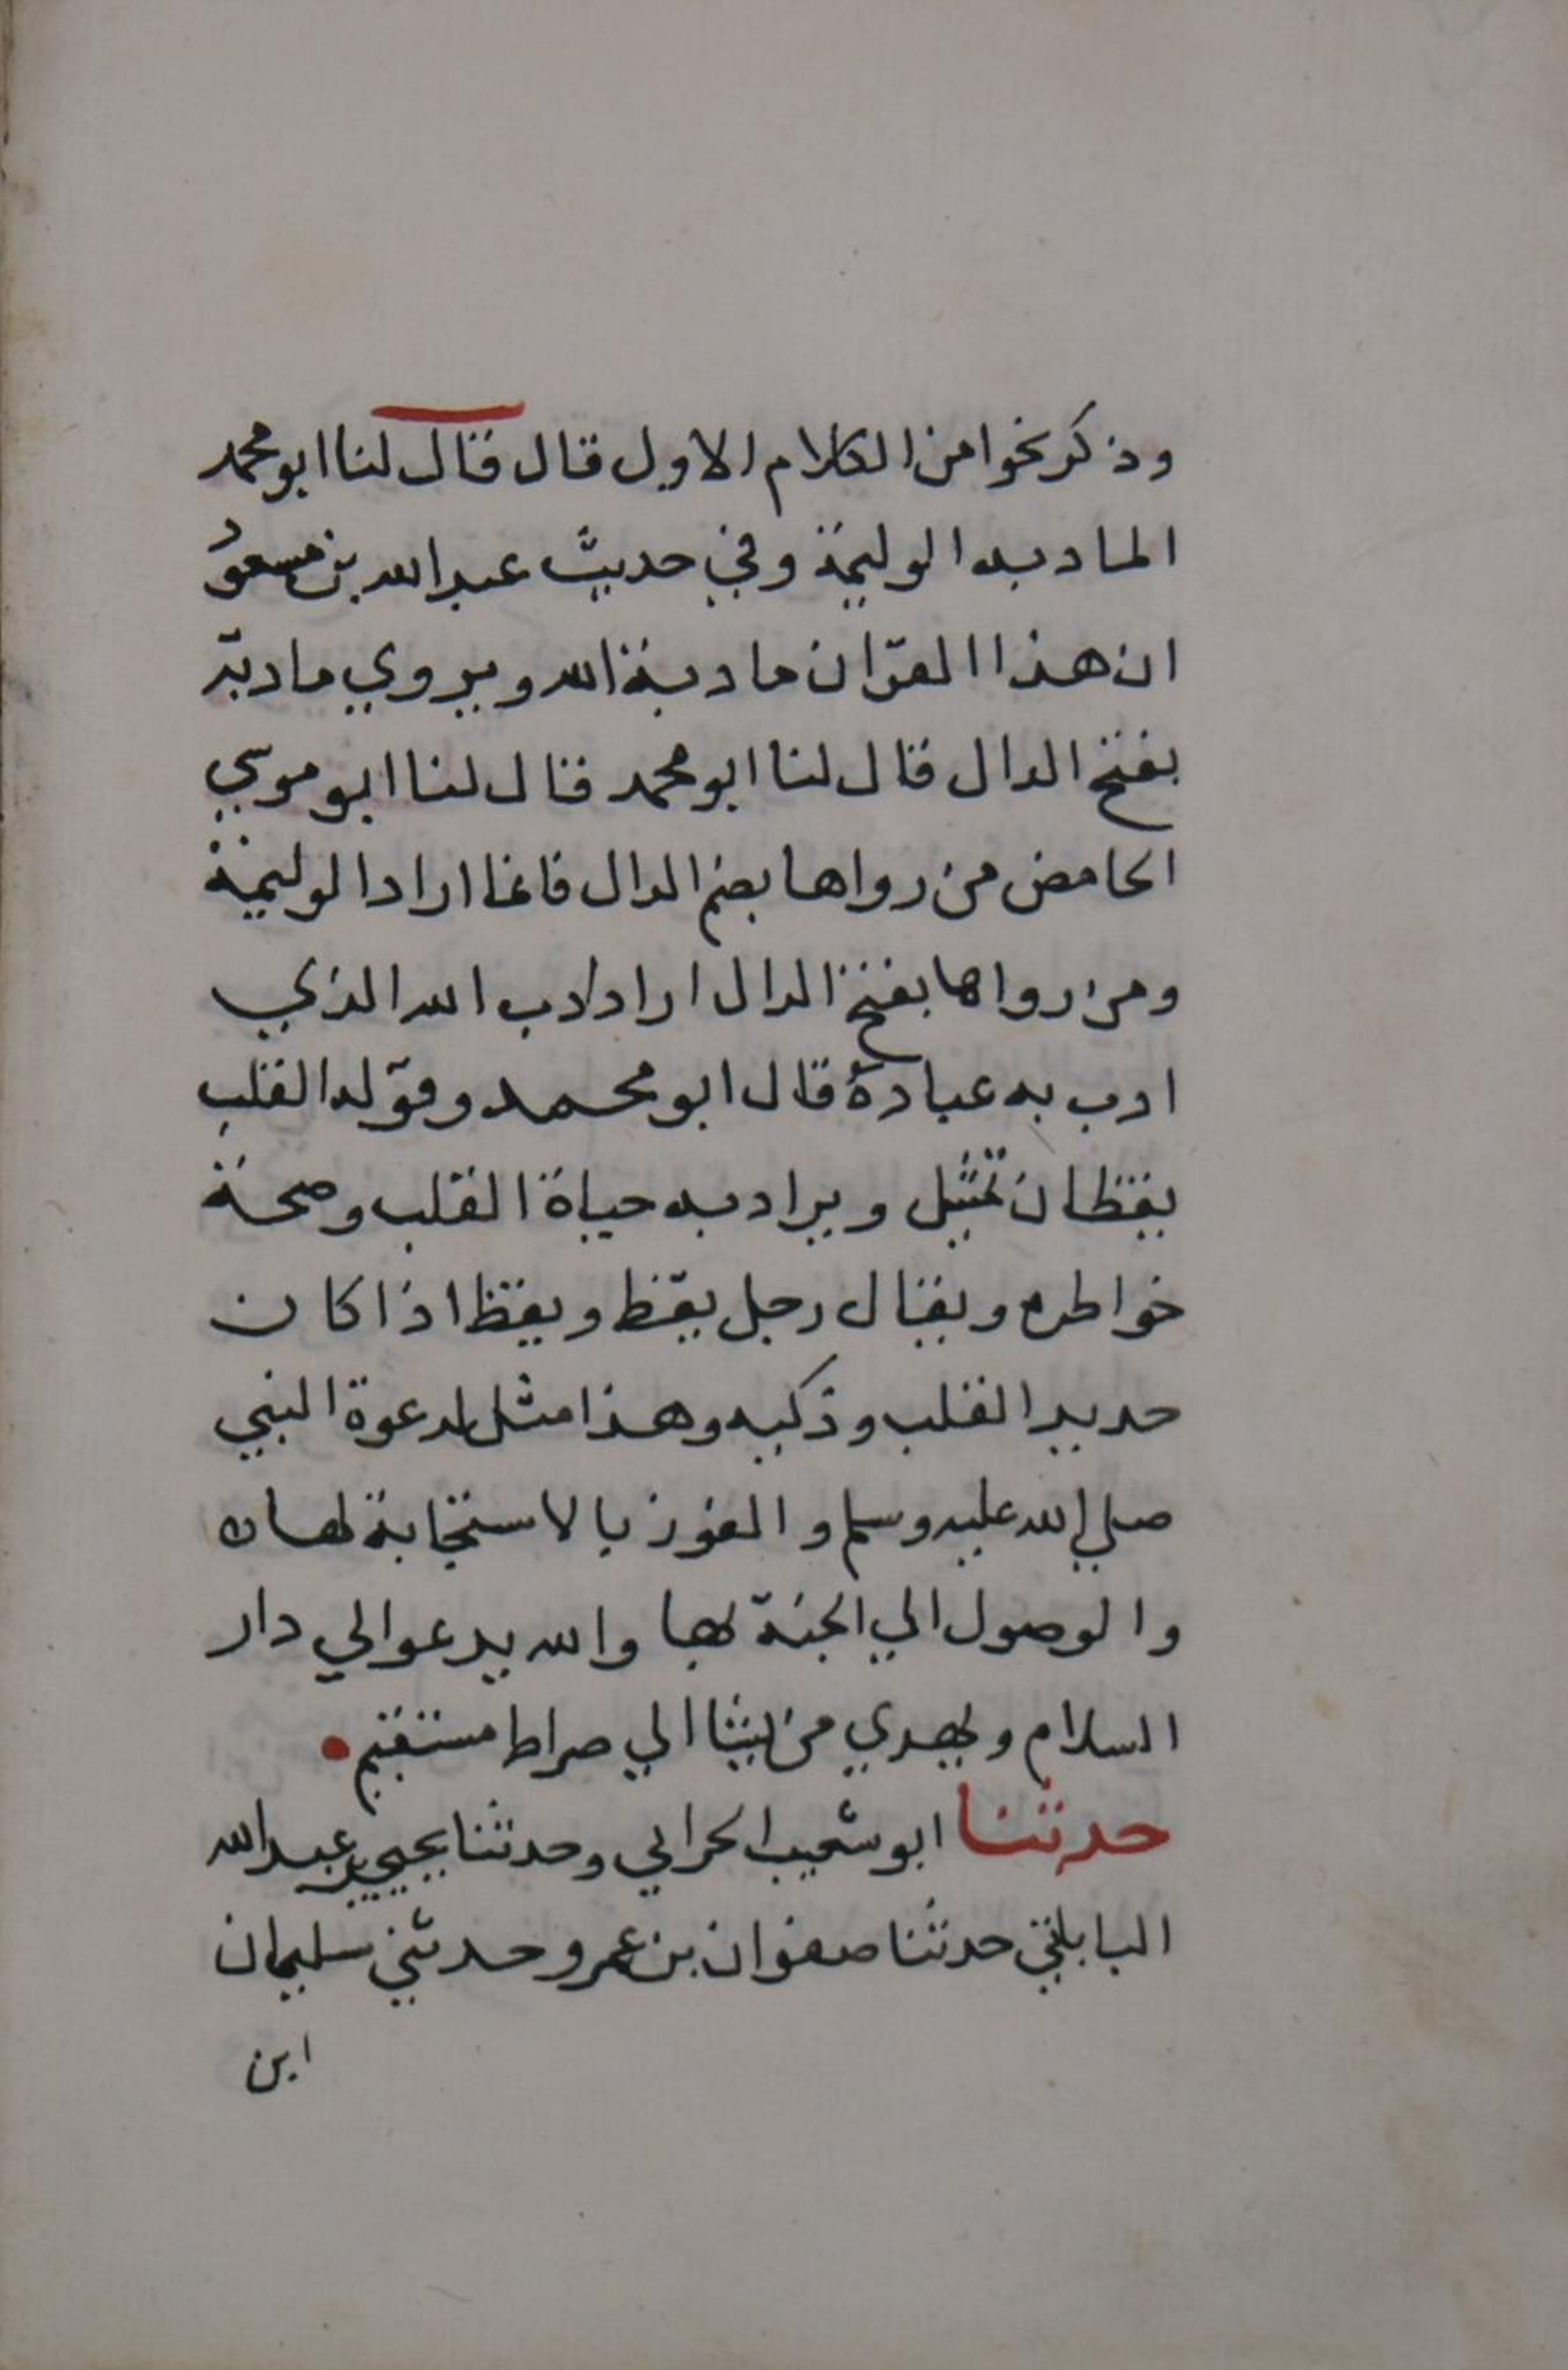 وذكر نحوا من الكلام الاول قال قال لنا ابو محمد
المادبه الوليمة وفي حديث عبد الله بن مسعود
ان هذا القران مادبة الله ويروي مادبة
بفتح الدال قال لنا ابو محمد قال لنا ابو موسي
الحامض من رواها بضم الدال فانما اراد الوليمة
ومن رواها بفتح الدال اراد ادب الله الذي
ادب به عبادة قال ابو محمد وقوله القلب
يقظان تمثيل ويراد به حياة القلب وصحة
خواطره ويقال رجل يقظ ويقظ اذا كان
حديد القلب وذكيه وهذا مثل لدعوة النبي
صلي الله عليه وسلم والفوز بالاستجابة لها
والوصول الي الجنة لها والله يدعو الي دار
السلام ويهدي من يشا الي صراط مستقيم
حدثنا ابو شعيب الحراني وحدثنا يحيي بن عبد الله
البابلتي حدثنا صفوان بن عمرو حدثني سليمان
ابن